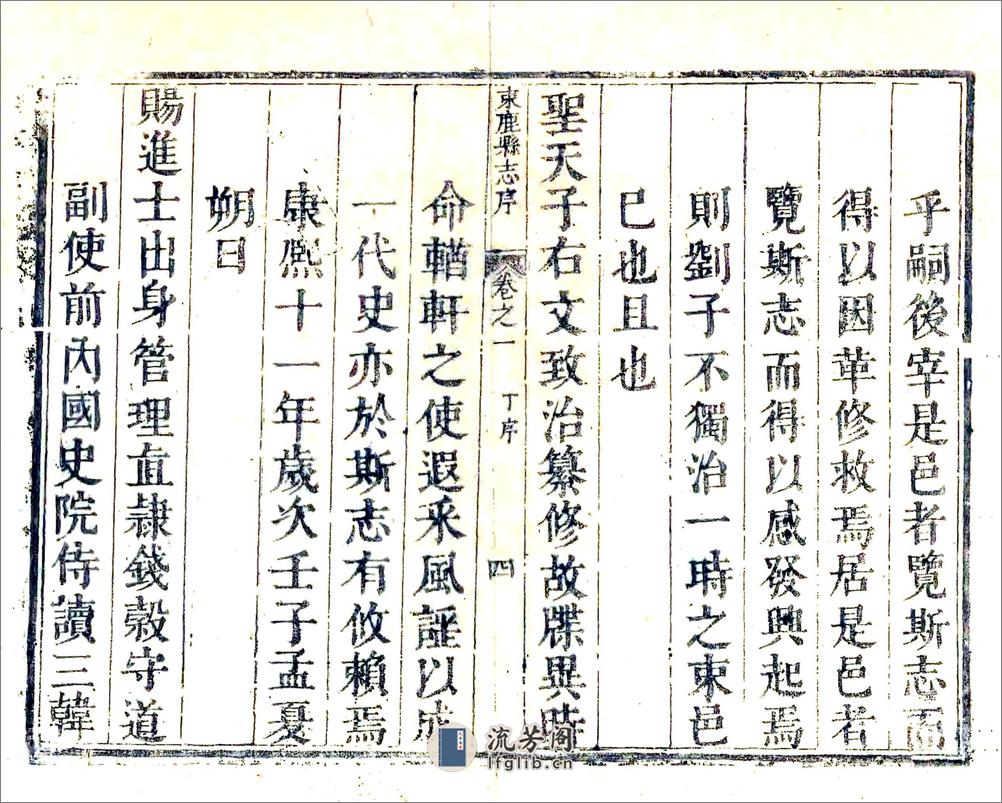 乎嗣後宰是邑者覽斯志而
得以因革修救焉居是邑者
覽斯志而得以感發興起焉
則劉子不獨治一時之束邑
已也且也
聖天子右文致治纂修故牒異時
束鹿縣志序 卷之一 丁序 四
命輶軒之使遐采風謡以成
一代史亦於斯志有攸賴焉
康熙十一年歲次壬子孟夏
朔日
賜進士出身管理直隷錢榖守道
副使前内國史院侍讀三韓
流芳阁
lfglib.cn